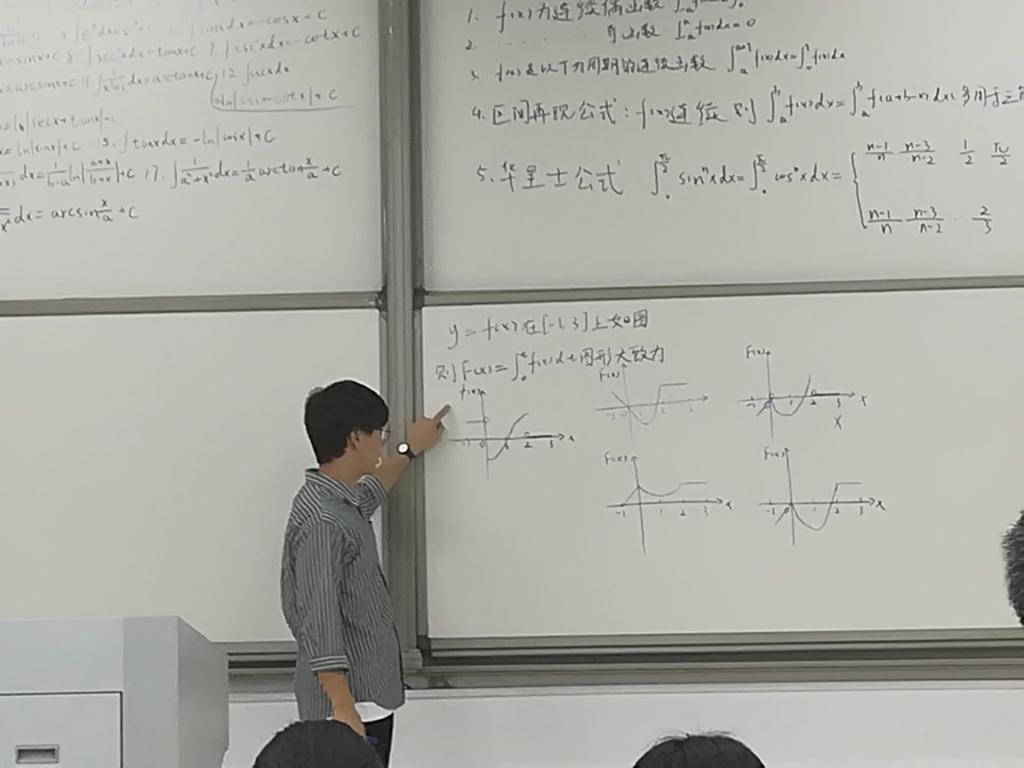 ∫sinxdx=-cosx+C
=sinx+C 8. ∫sec²xdx=tanx+C 9. ∫csc²xdx=-cotx+C
=arcsinx+C 11. dx=arctanx+C 12. ∫cscxdx
=ln|cscx-cotx|+C
=ln|secx+tanx|+C
=ln|sinx|+C 15. ∫tanxdx=-ln|cosx|+C
dx=1/(b-a)ln|(a+x)/(b+x)|+C 17. ∫1/(a²+x²)dx=1/a arctan x/a+C
dx=arcsin x/a+C
1. f(x)为连续偶函数
2. 奇函数 f(x)dx=0
3. f(x)是以T为周期的连续函数
4. 区间再现公式:f(x)连续 则∫ₐᵇf(x)dx=∫ₐᵇf(a+b-x)dx(多用于三角
5. 华里士公式 ∫₀^(π/2) sinⁿxdx=∫₀^(π/2) cosⁿxdx={
(n-1)/n (n-3)/(n-2) 1/2 π/2
(n-1)/n (n-3)/(n-2) ·· 2/3
y=f(x)在[-1,3]上如图
则F(x)=∫₀ˣf(t)dt图形大致为
f(x)
-1 0 2 3 x
F(x)
-1 0 1 2 3
F(x)
-1 1 2 3 x
X
F(x)
-1 1 2 3 x
F(x)
-1 1 2 3 x